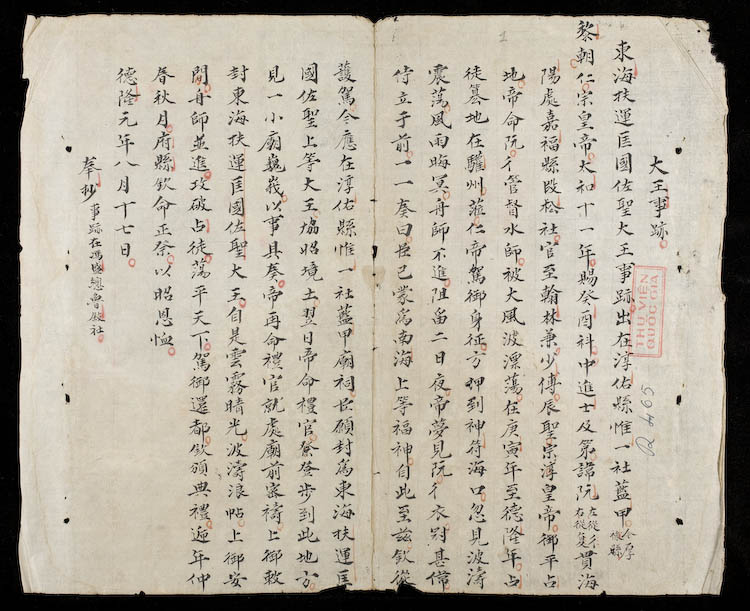 大王事跡
東海扶運匡國佐聖大王事跡出在淳佑縣惟一社藍甲
黎朝仁宗皇帝太和十一年賜癸酉科中進士及第諱阮左從彳右從复貫海
陽處嘉福縣段松社官至翰林兼少傅辰聖宗淳皇帝御平占
地帝命阮彳管督水師被大風波漂蕩在庚寅年至德隆年占
徒篡地在驩州仁帝駕御身征方押到神符海口忽見波濤
震蕩風雨晦冥舟師不進阻留二日夜帝夢見阮彳衣冠甚偉
侍立于前一一奏曰臣已蒙為南海上等福神自此至茲欽從
護駕今應在淳佑縣惟一社藍甲廟祠臣願封為東海扶運匡
國佐聖上等大王協昭境土翌日帝命禮官祭登步到此地方
見一小廟巍峩以事具奏帝再命禮官就處廟前密禱上御敕
封東海扶運匡國佐聖大王自是雲霧晴光波濤浪帖上御安
閒舟師並進攻破占徒蕩平天下駕御還都欽頒典禮遞年仲
春秋月府縣欽命正祭以昭恩恤
德隆元年八月十七日
奉抄事跡在馮盛總魯殿社
THƯ VIỆN
QUỐC GIA
R 465